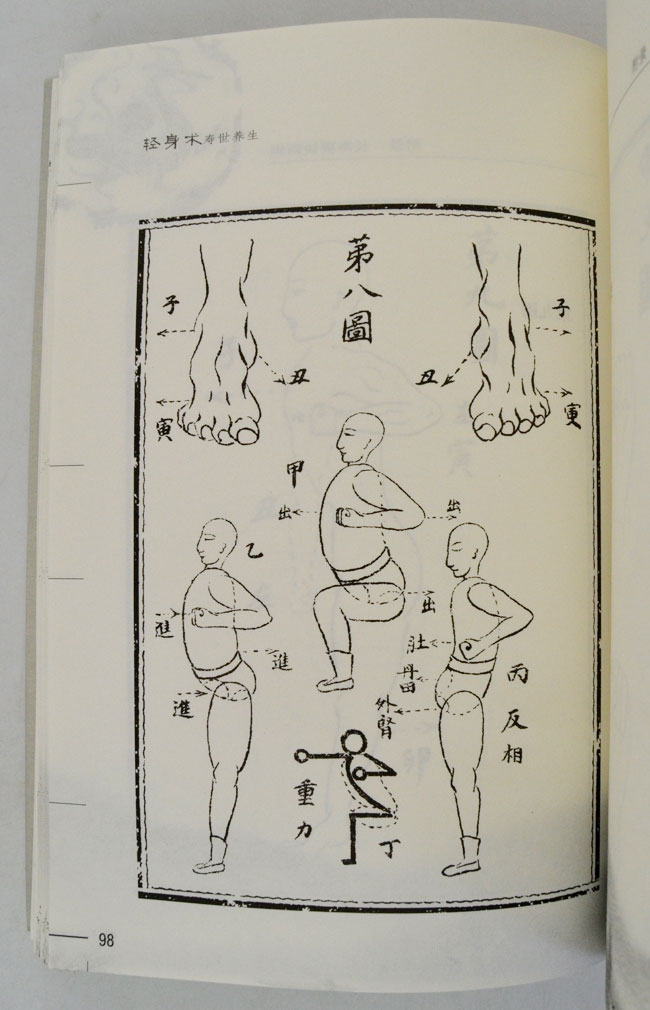 轻身术寿世养生
第八圖
子
丑
寅
子
丑
寅
甲
出
出
出
乙
進
進
進
丙
反相
肚
丹田
外腎
重力
丁
98